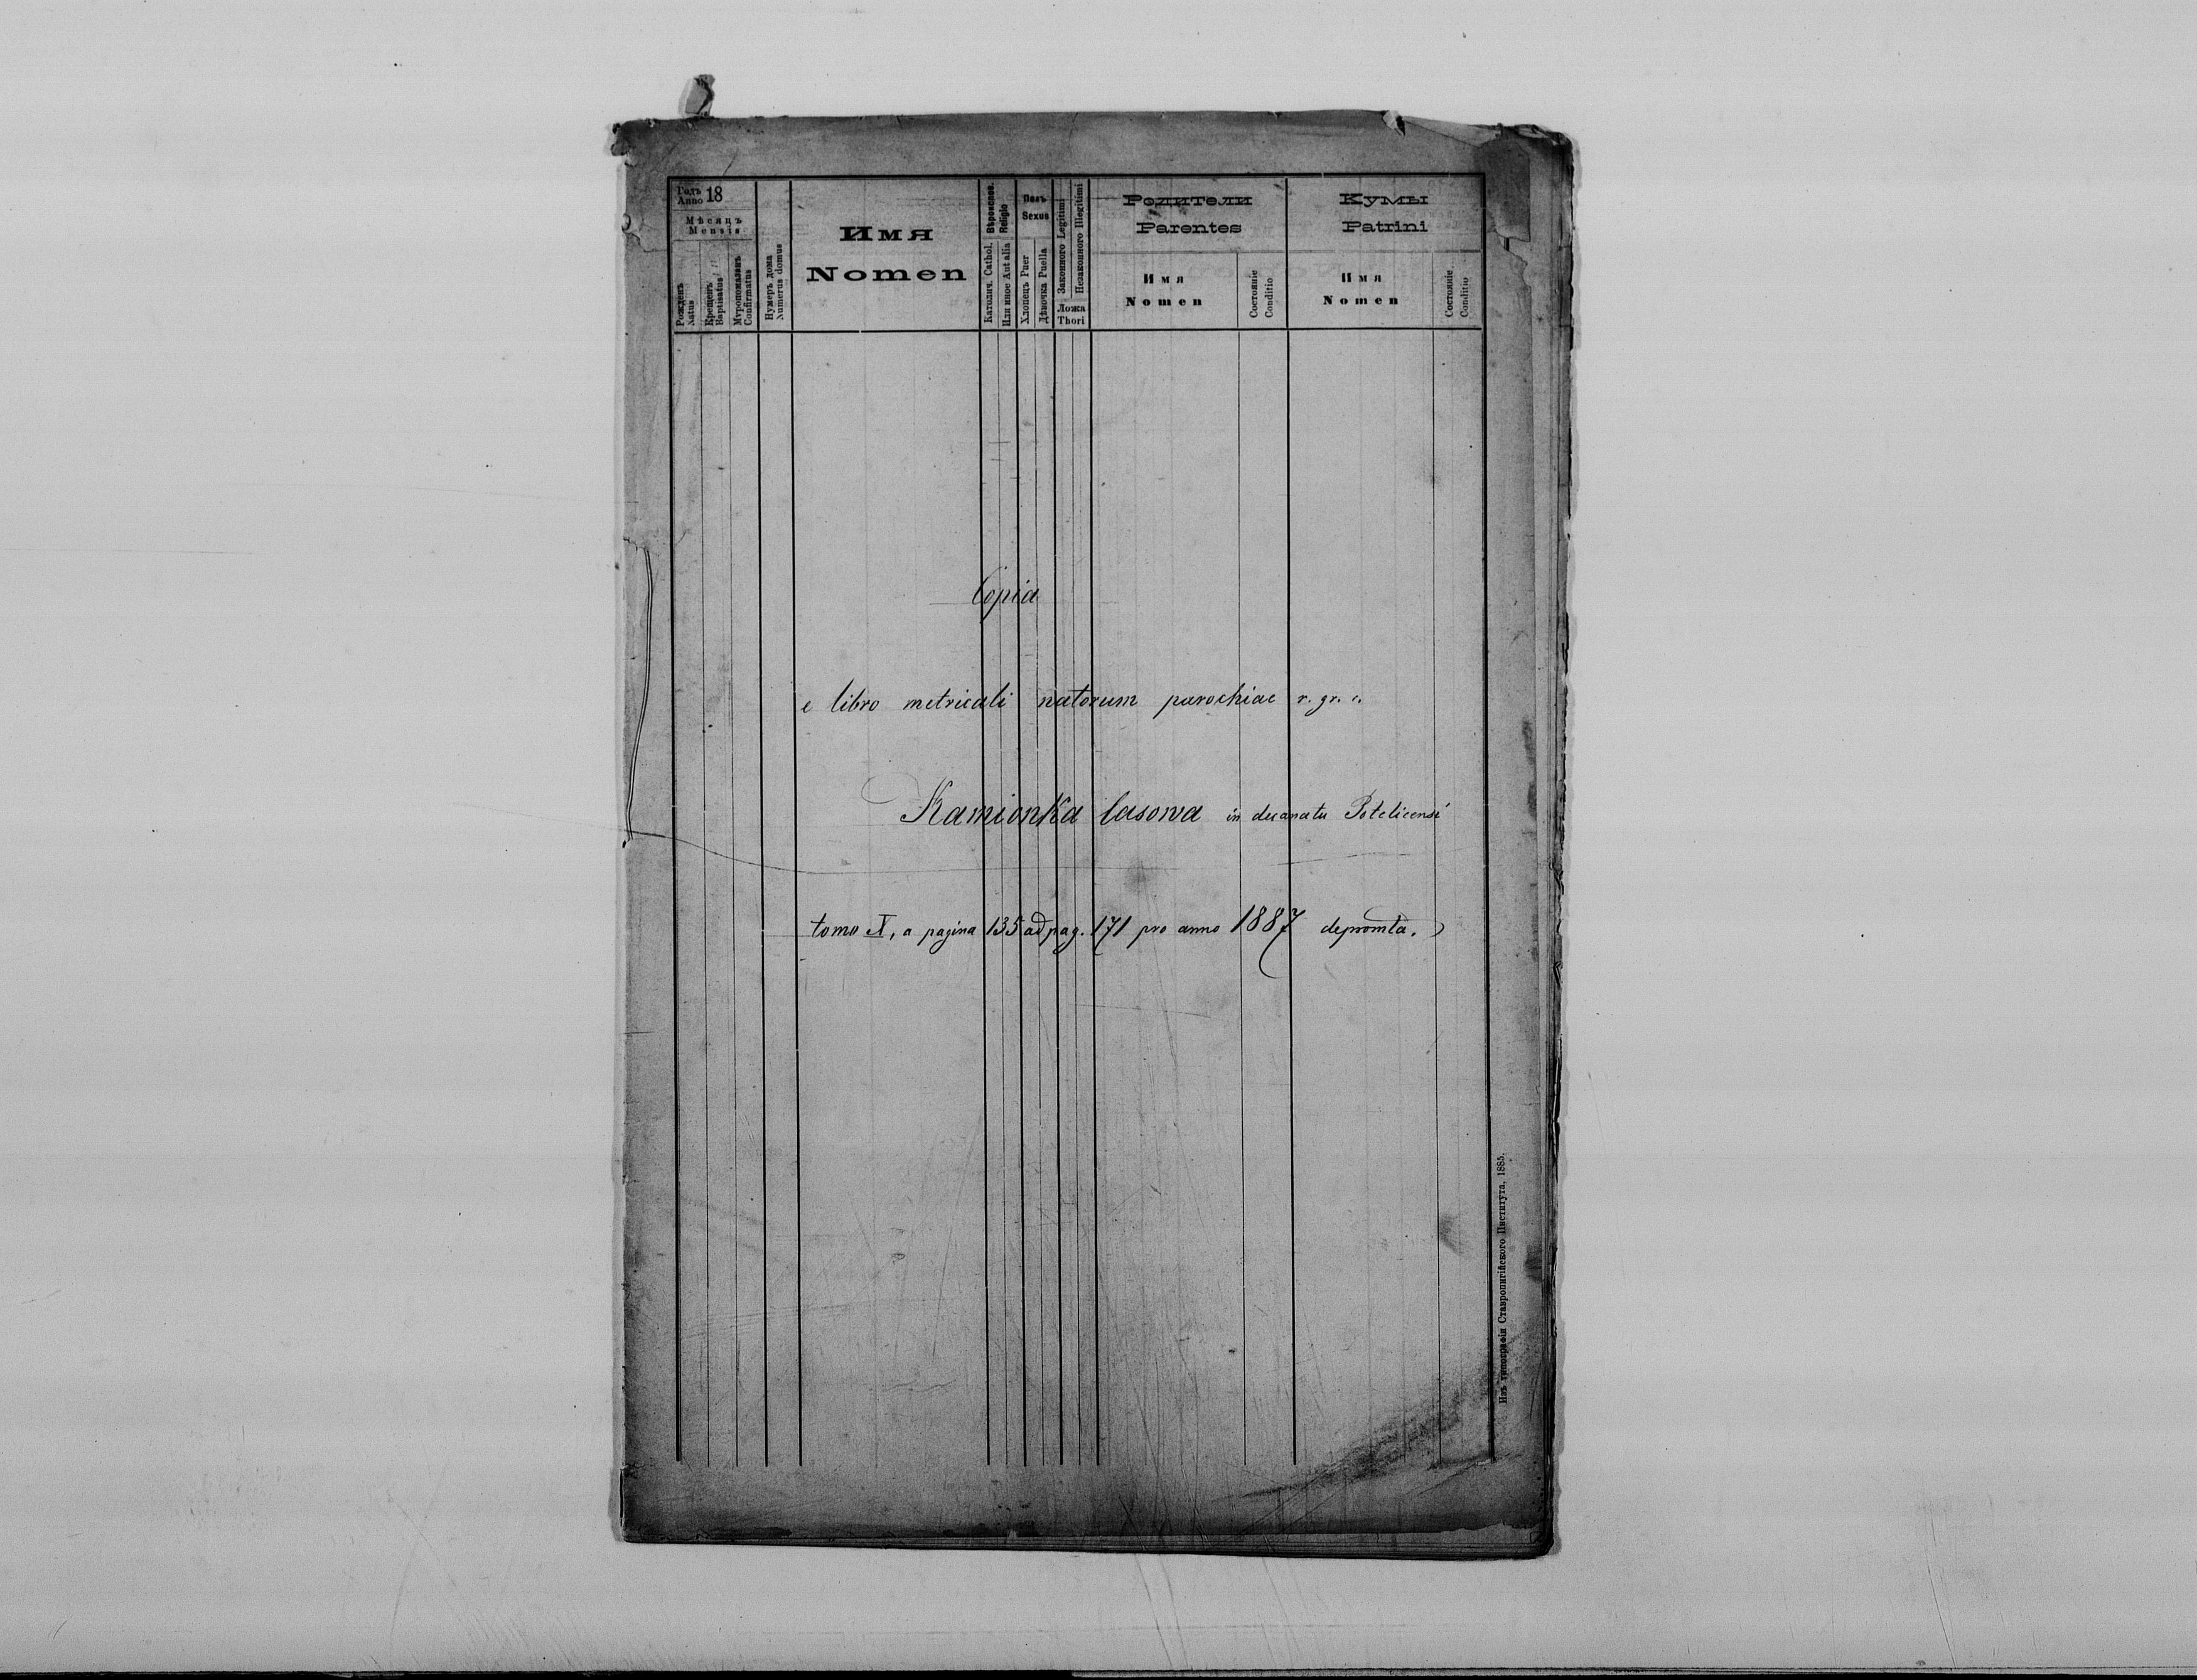 Годъ 18
Anno
Мѣсяцъ
Mensis
Рожденъ
Natus
Крещенъ
Baptisatus
Муропомазанъ
Confirmatus
Нумеръ дома
Numerus domus
Имя
Nomen
Вѣроиспов.
Religio
Католич. Cathol.
Или иное Aut alia
Полъ
Sexus
Хлопецъ Puer
Дѣвочка Puella
Законного Legitimi
Незаконного Illegitimi
Ложа
Thori
Родители
Parentes
Имя
Nomen
Состояніе
Conditio
Кумы
Patrini
Имя
Nomen
Состояніе
Conditio
Copia
e libro metricali natorum parochiae r. gr. c.
Kamionka lasowa in decanatu Potelicensi
tomo, a pagina 135 ad pag. 171 pro anno 1887 depromta.
Изъ типографіи Ставропигійского Института, 1885.